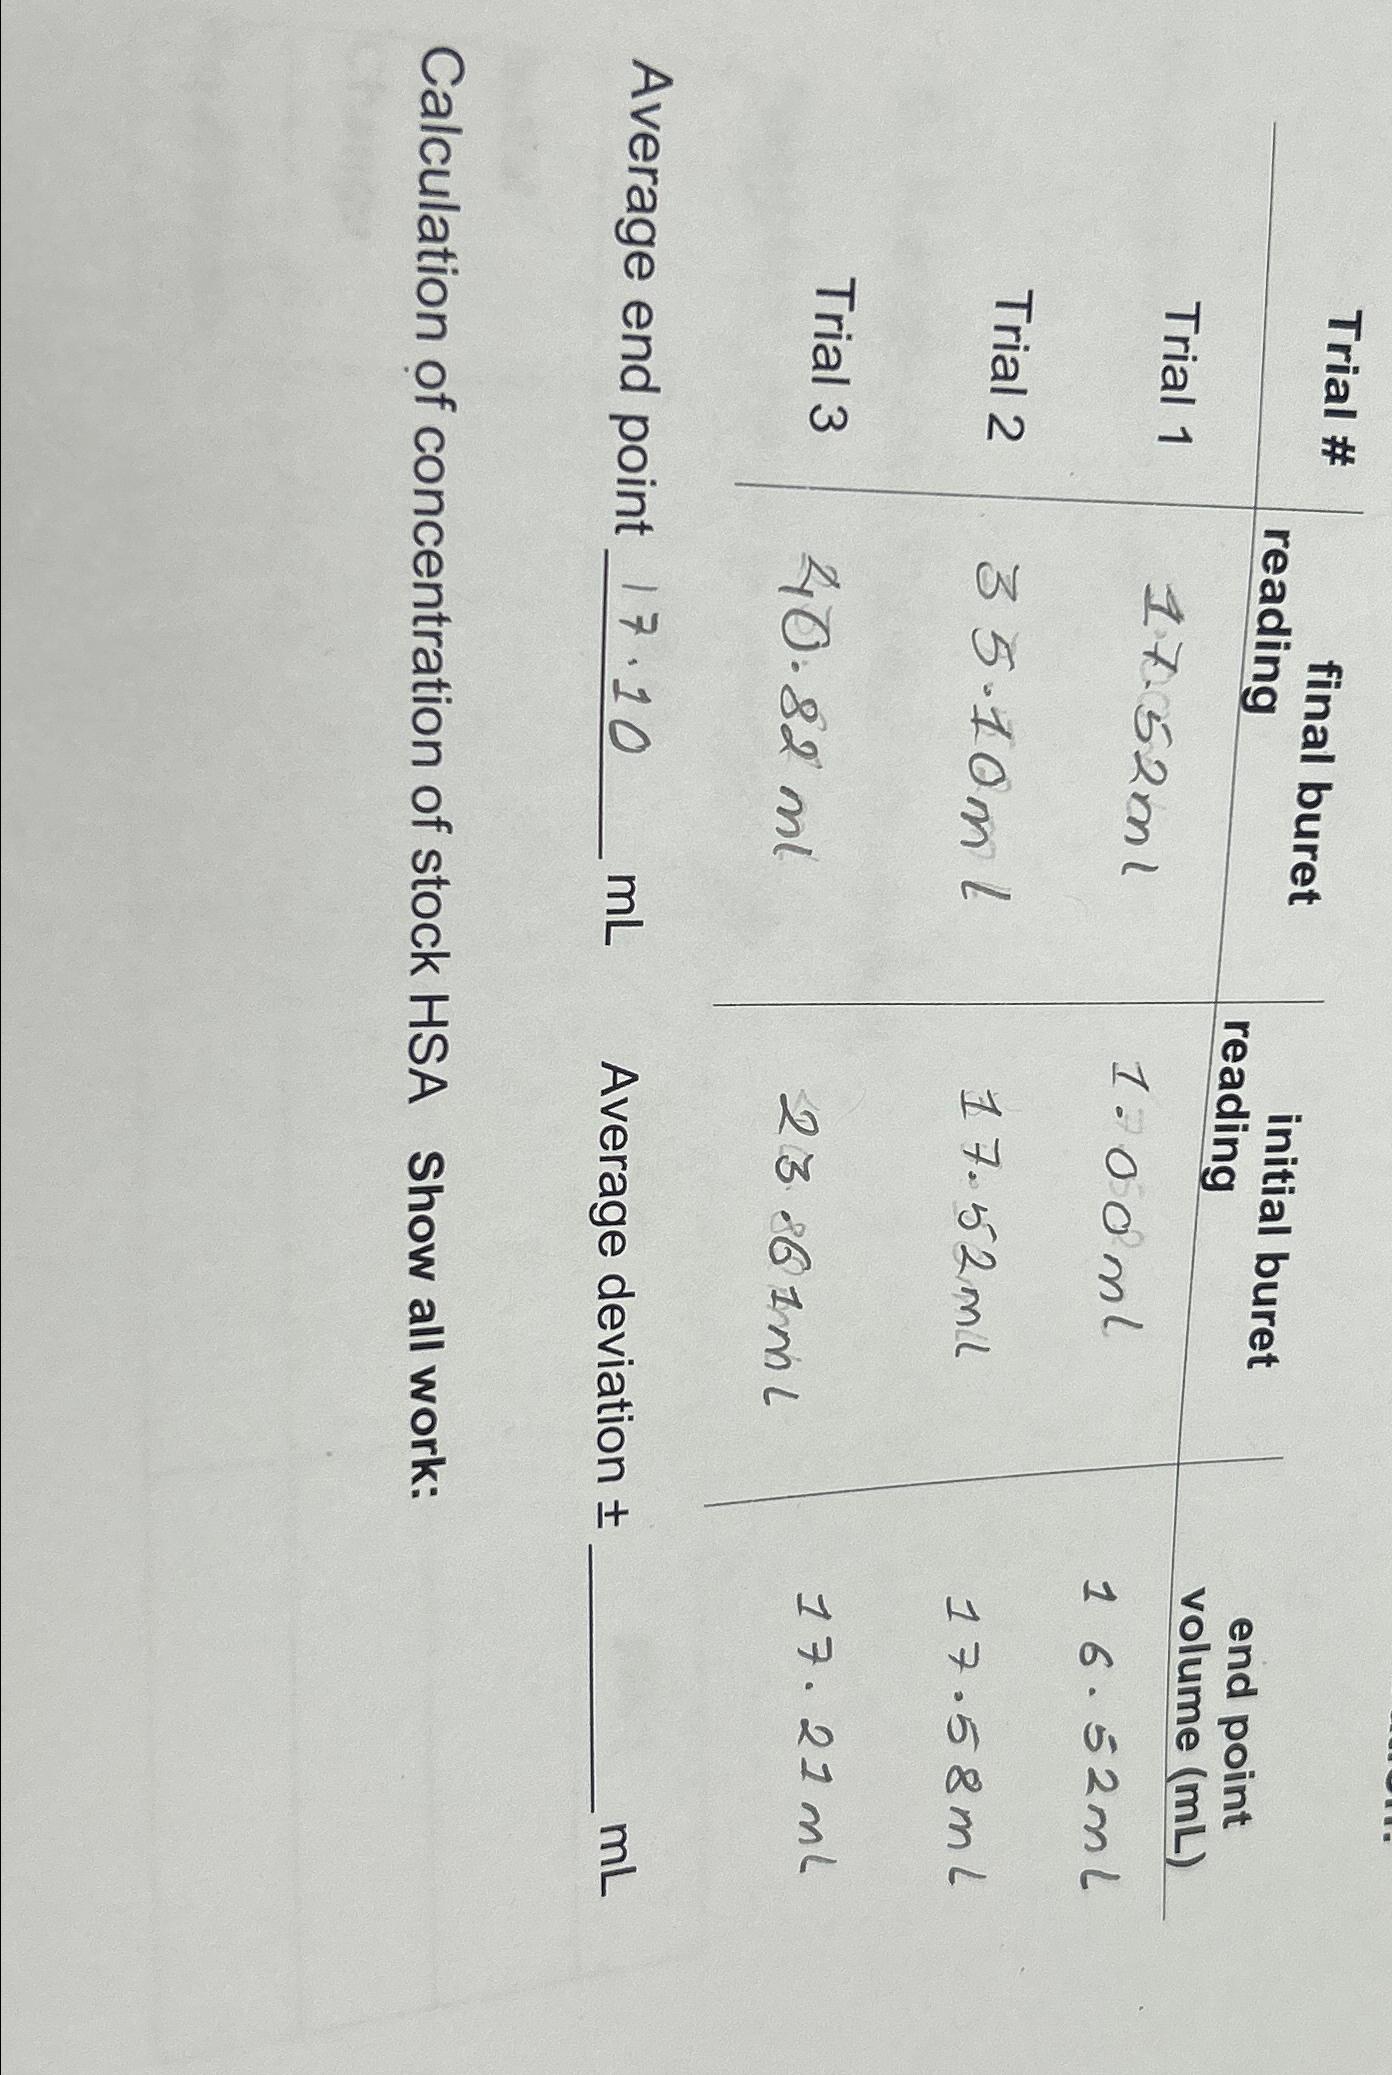 Trial # final buret reading initial buret reading end point volume (mL)
Trial 1 17.52ml 1.00ml 16.52mL
Trial 2 35.10ml 17.52ml 17.58mL
Trial 3 40.82ml 23.61mL 17.21mL
Average end point 17.10 mL Average deviation ± mL
Calculation of concentration of stock HSA Show all work: